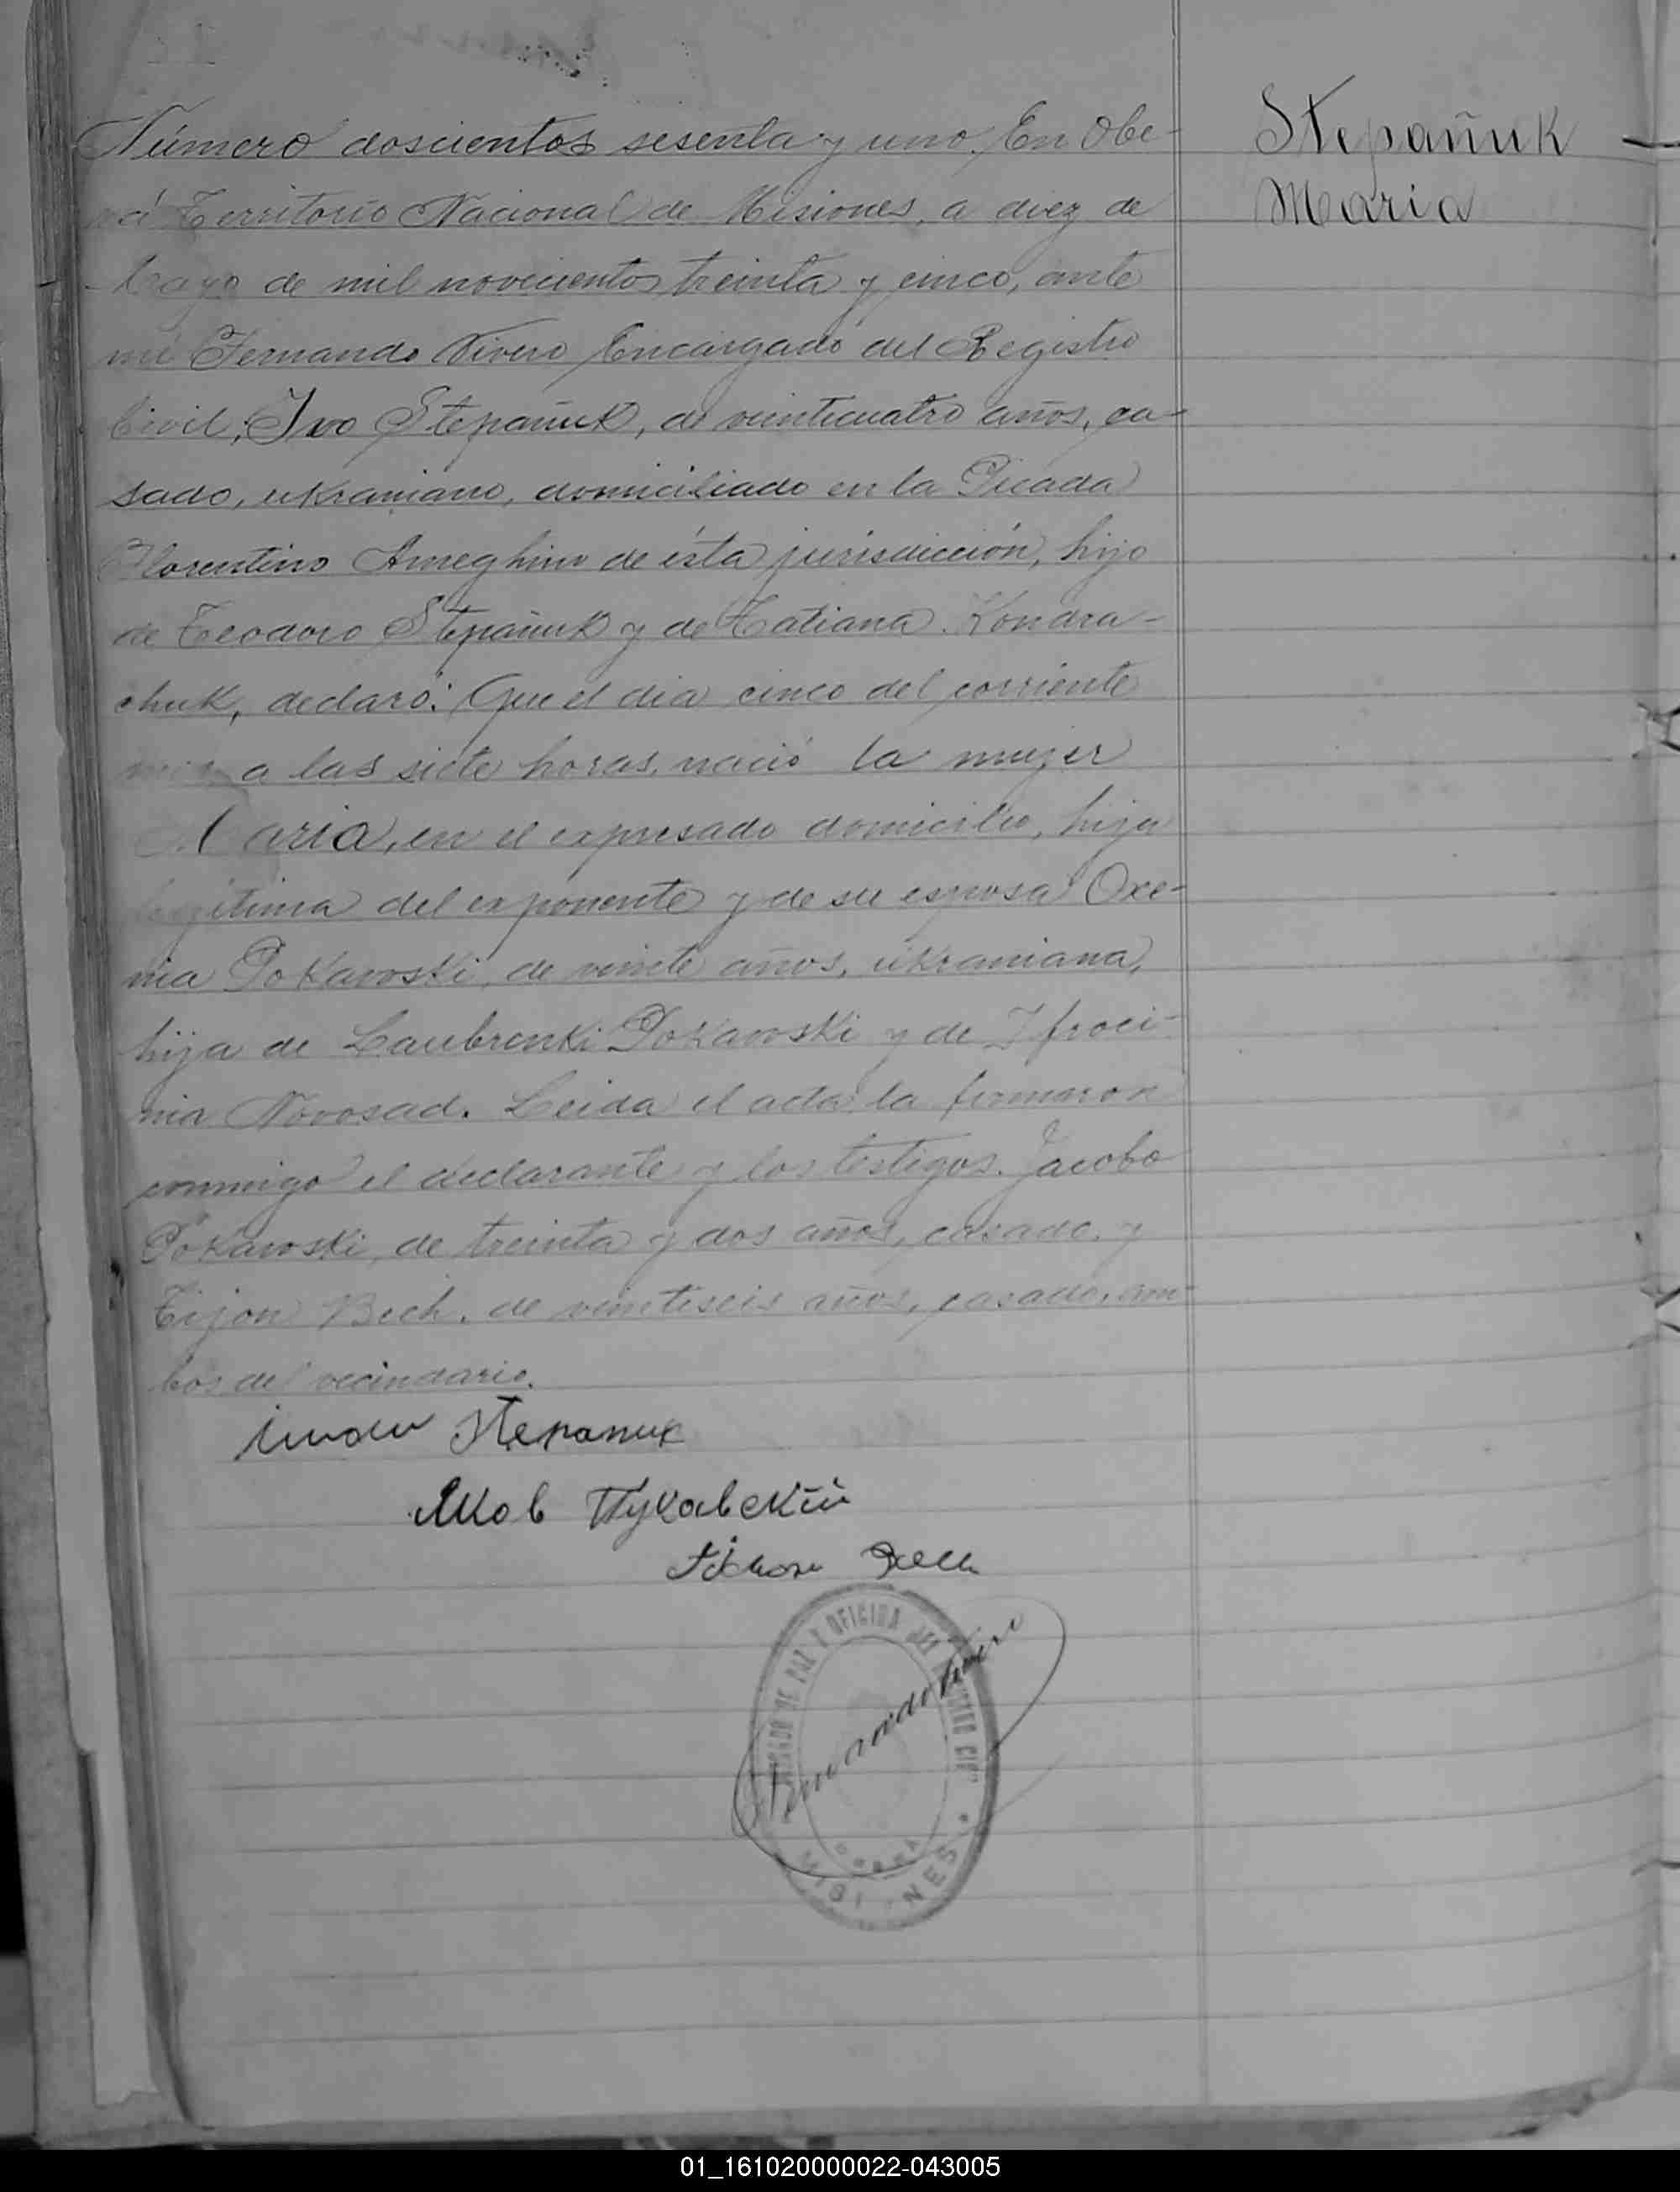 Número doscientos sesenta y uno. En Obe-
rá Territorio Nacional de Misiones, a diez de
Mayo de mil novecientos treinta y cinco, ante
mi Fernando Vivero Encargado del Registro
Civil; Ivo Stepañuk, de veinticuatro años, ca-
sado, ukraniano, domiciliado en la Picada
Florentino Ameghino de ésta jurisdicción, hijo
de Teodoro Stepañuk y de Tatiana Kondra-
chuk, declaró: Que el dia cinco del corriente
mes a las siete horas, nació la mujer
Maria, en el expresado domicilio, hija
legitima del exponente y de su esposa Oxe-
nia Pokawoski, de veinte años, ukraniana,
hija de Laubrenki Pokawoski y de Ifroci-
nia Novosad. Leida el acta la firmaron
conmigo el declarante y los testigos. Jacobo
Pokawoski, de treinta y dos años, casado, y
Tijon Bech, de veintiseis años, casado, am-
bos del vecindario.
Stepanuk
Яков Пукавский
Fernando Vivero
JUZGADO DE PAZ Y OFICINA DEL REGISTRO CIVIL
MISIONES
Stepañuk
Maria
01_161020000022-043005